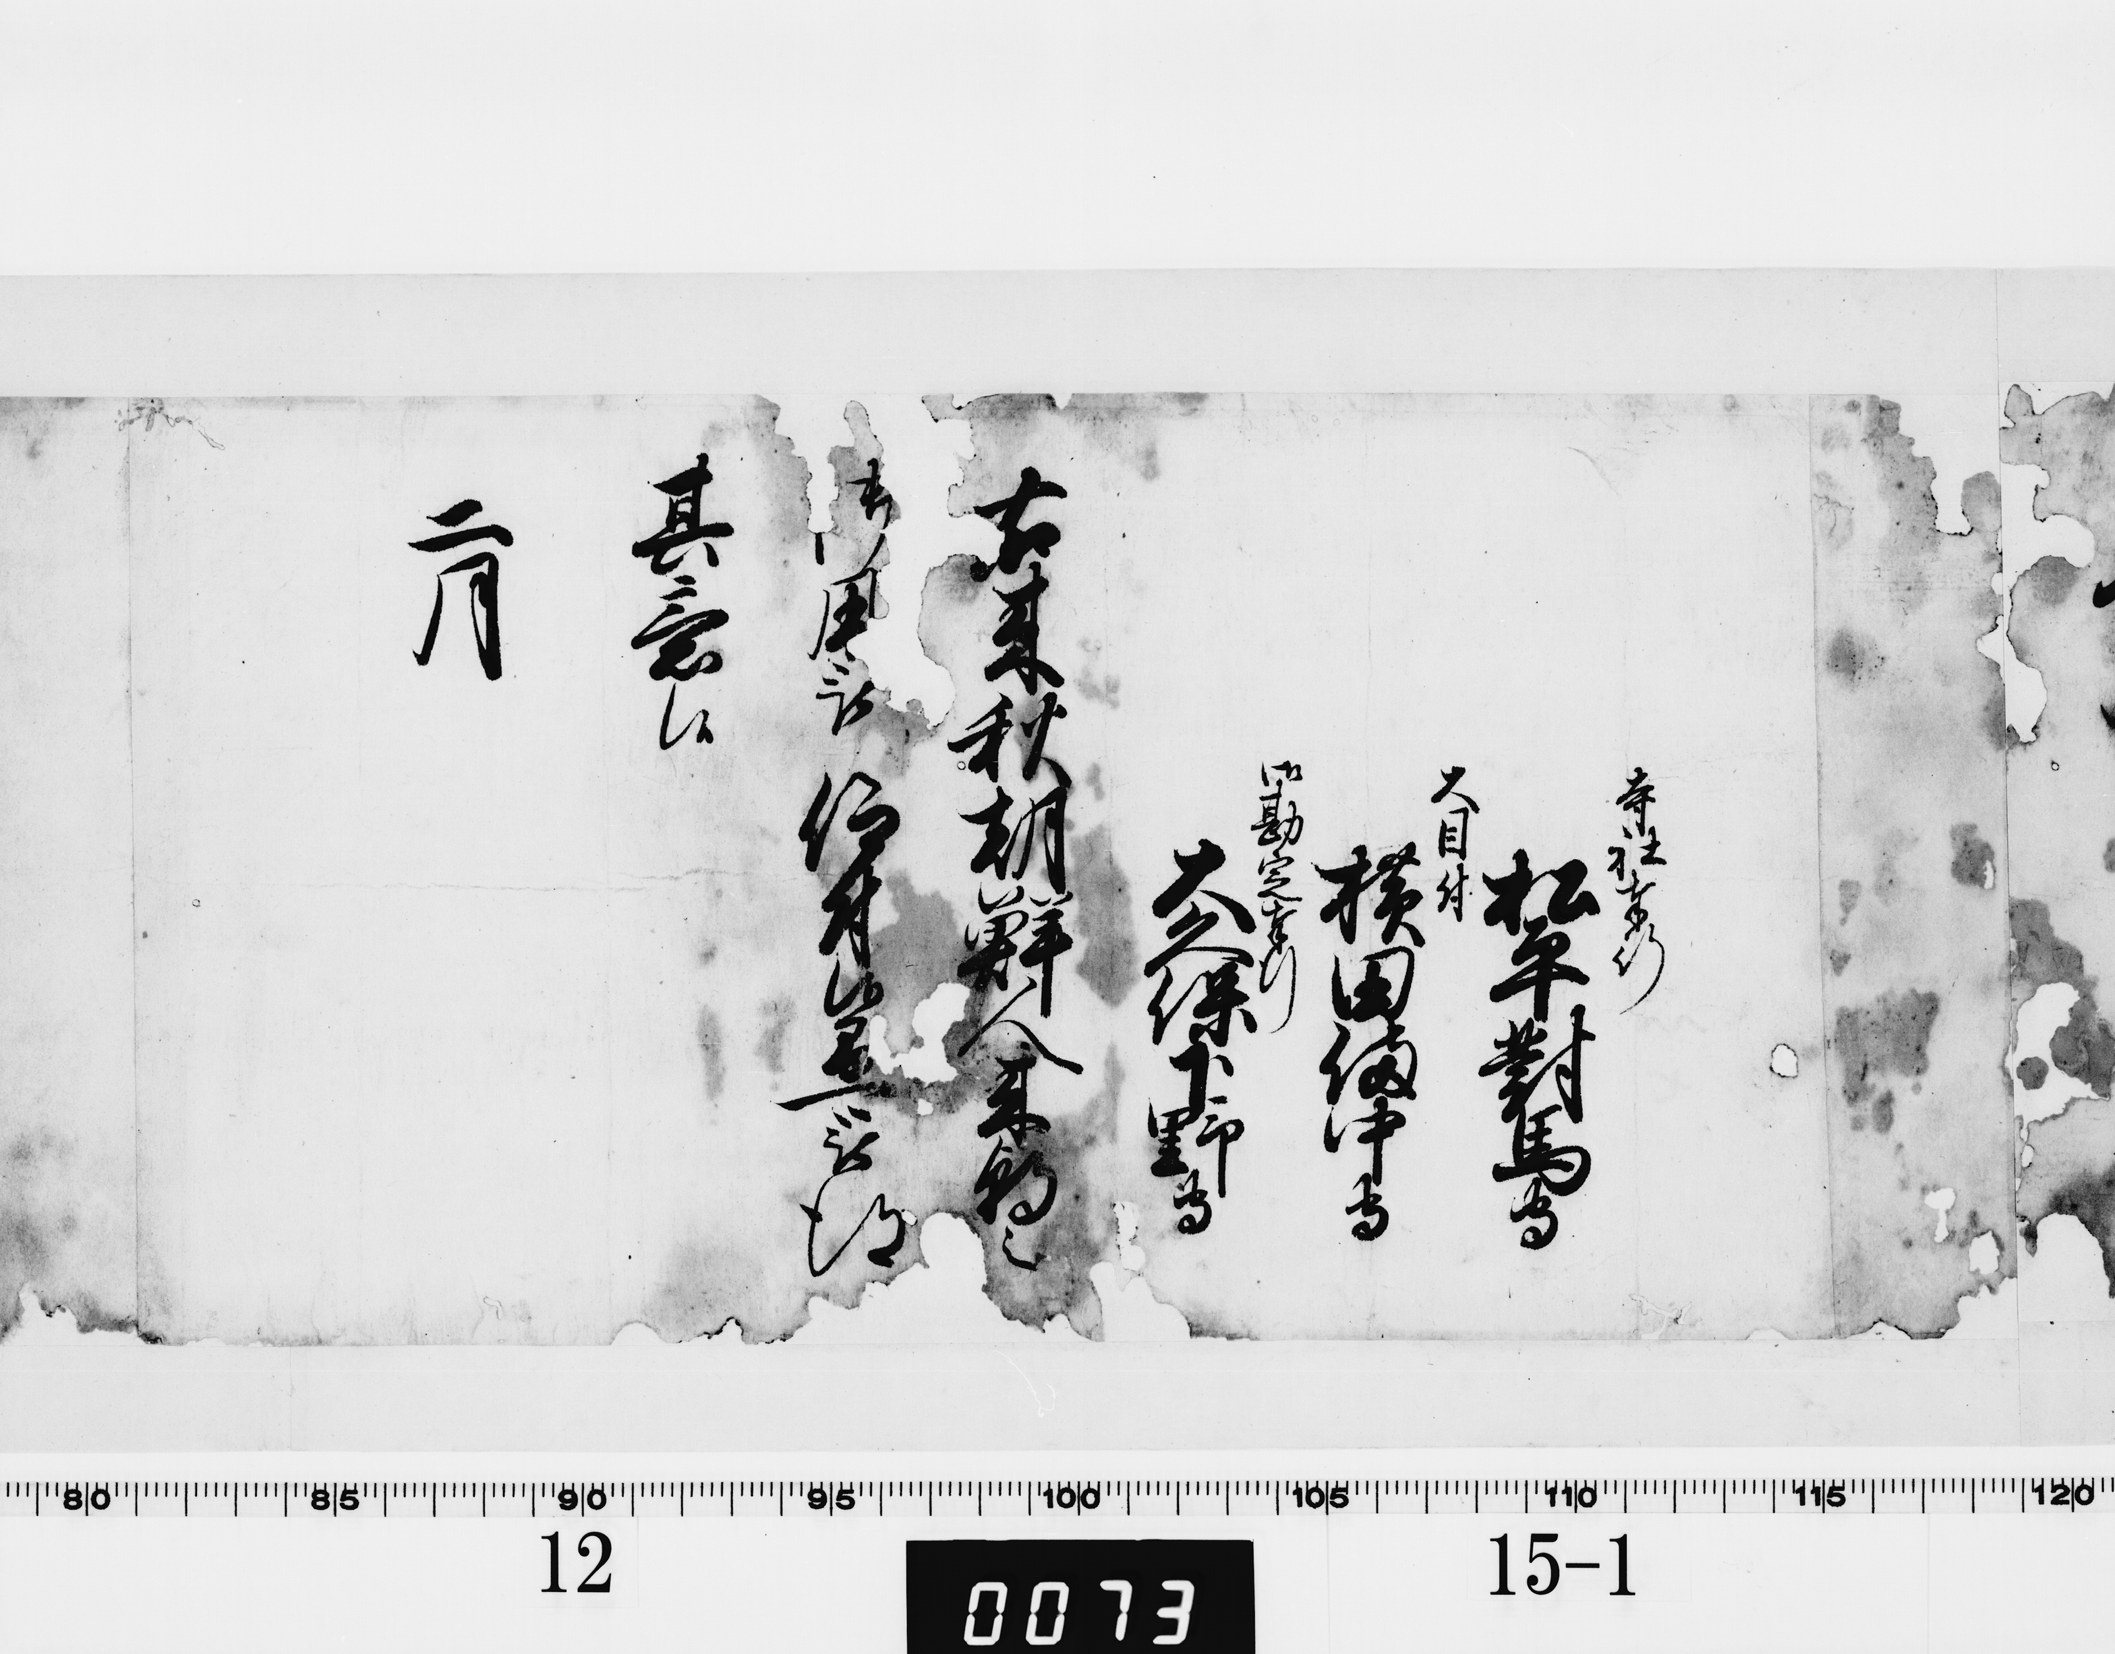 寺社奉行
松平對馬守
大目付
横田備中守
御勘定奉行
大久保下野守
右来秋朝鮮人来聘之
御用被 仰付候 被得
其意候
二月
80 85 90 95 100 105 110 115 120
12
15-1
0073